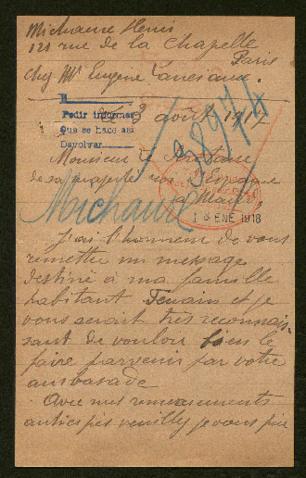 Michaux Henri
121 rue de la Chapelle
Paris
chez Mr Eugene
Pedir informes
Que se hace así
Devolver
3 août 1917
38974
Monsieur le
de sa majesté roi d'Espagne
à Madrid
Michaux
18 ENE 1918
J'ai l'honneur de vous
remettre un message
destiné à ma famille
habitant Denain et je
vous serait très reconnais
sant de vouloir bien le
faire parvenir par votre
ambasade
Avec mes remerciements
anticipés veuillez je vous prie